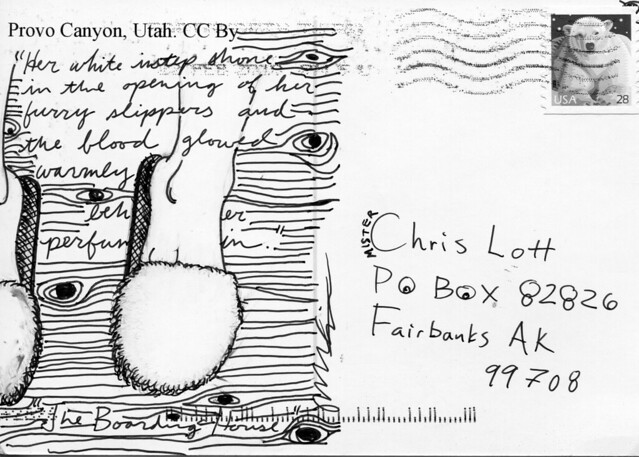 Provo Canyon, Utah. CC By
"Her white instep shone
in the opening of her
furry slippers and
the blood glowed
warmly
beh er
perfum in."
"The Boarding House"
USA 28
MISTER
Chris Lott
PO BOX 82826
Fairbanks AK
99708